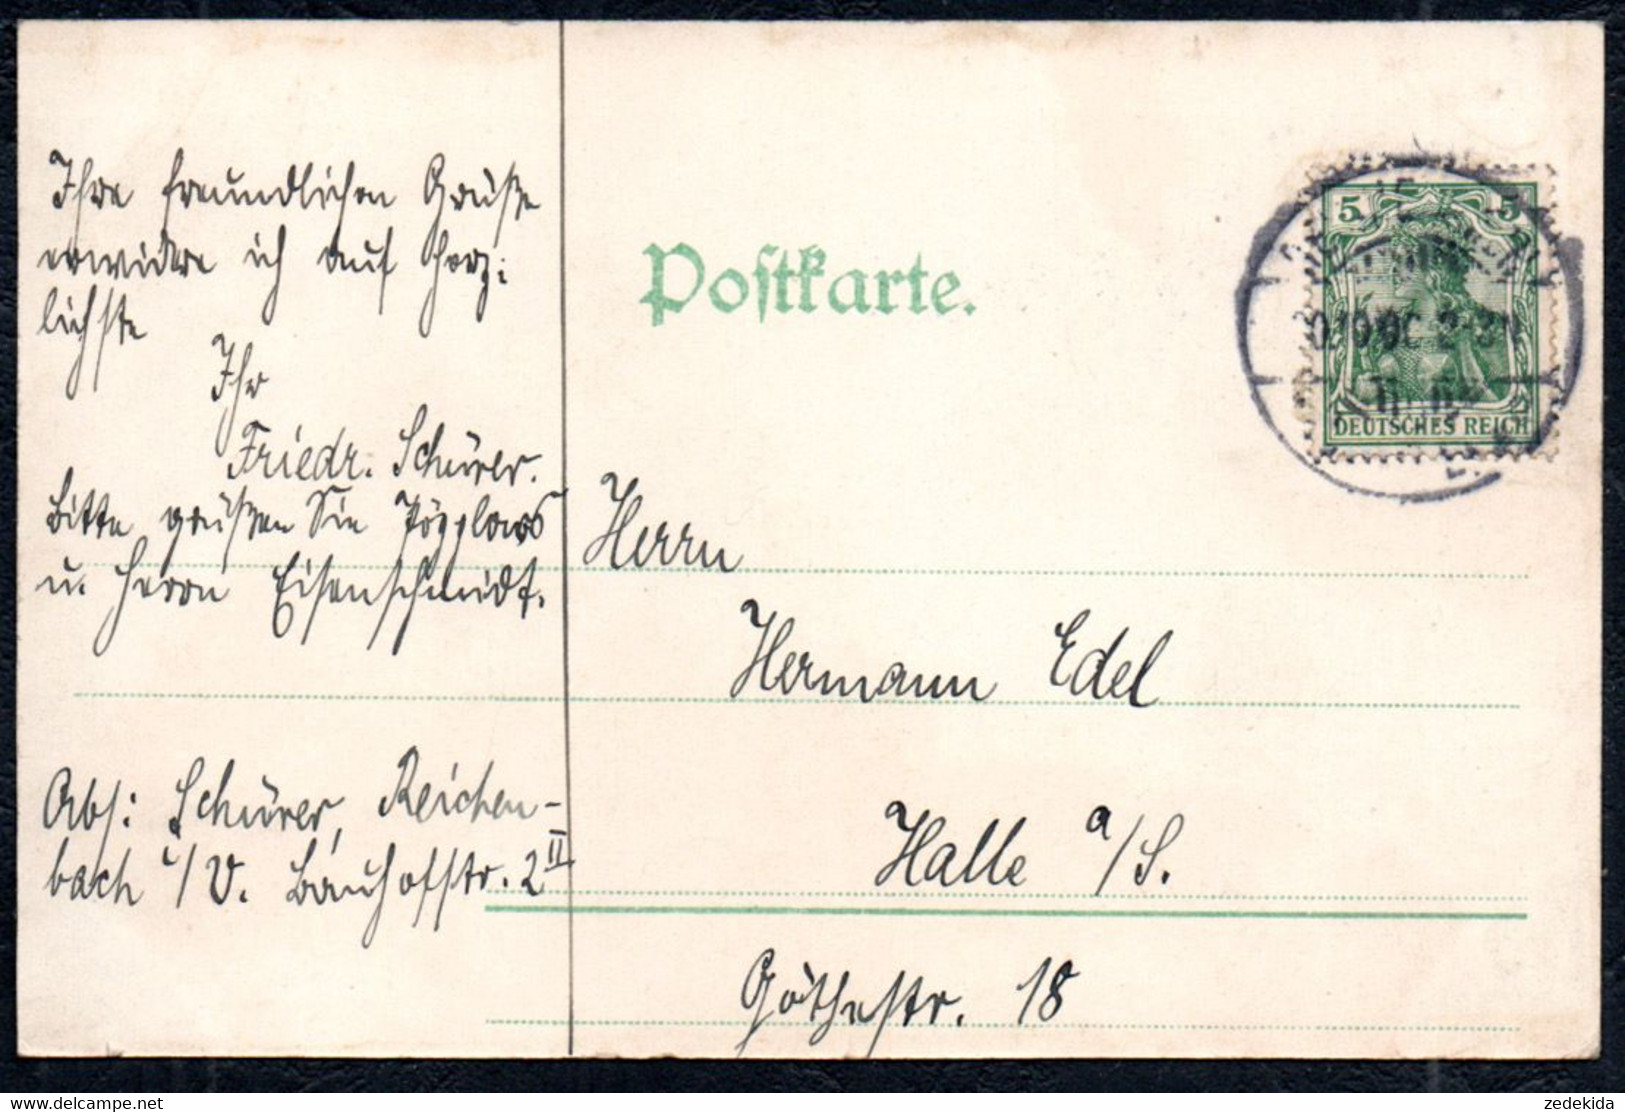 Ihre freundlichen Grüße
erwidere ich auf Herz-
lichste
Ihr
Friedr. Schürer.
Bitte grüßen Sie
u. Herrn Eisenschmidt.
Abs: Schürer, Reichen-
bach i/V. Bauhofstr. 2 II
Postkarte.
5 5
DEUTSCHES REICH
Herrn
Hermann Edel
Halle a/S.
Göthestr. 18
zedekida
delcampe.net